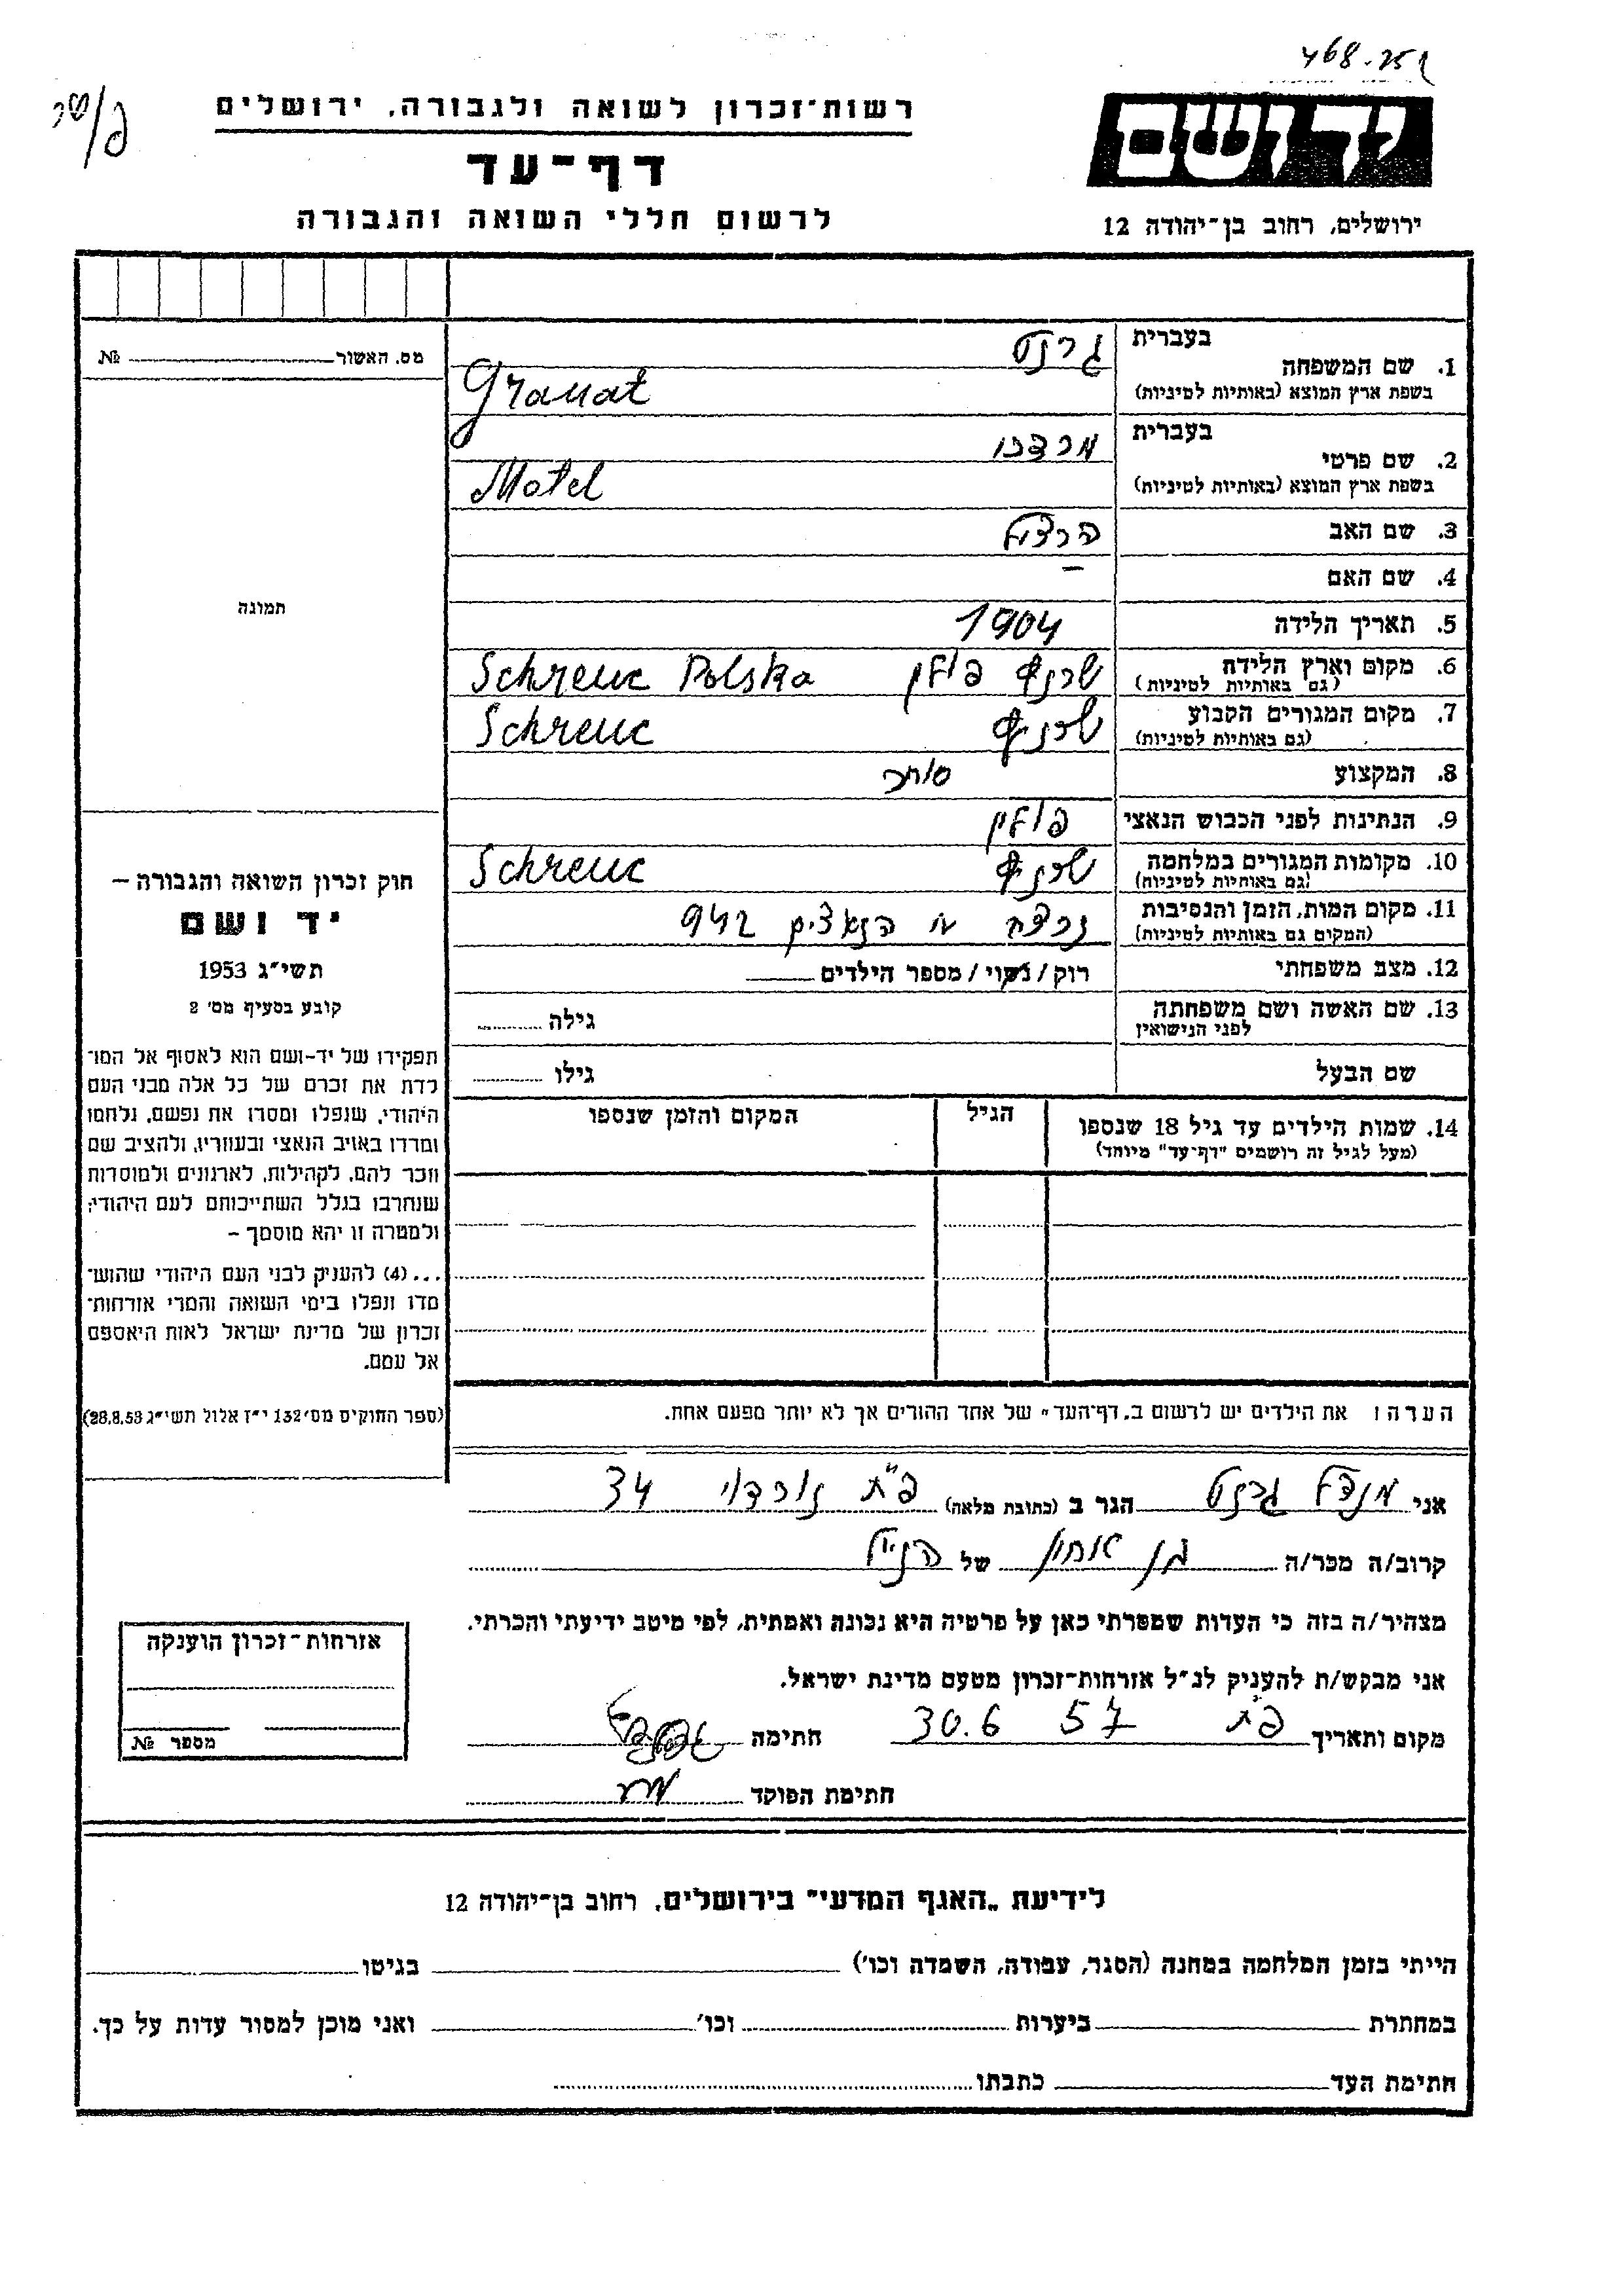 468.
רשות־זכרון לשואה ולגבורה, ירושלים
יד ושם
דף־עד
לרשום חללי השואה והגבורה
ירושלים, רחוב בן־יהודה 12
בעברית גרנט
1. שם המשפחה
בשפת ארץ המוצא (באותיות לטיניות) Granat
מס. האשור № 
בעברית מרדכי
2. שם פרטי
בשפת ארץ המוצא (באותיות לטיניות) Motel
3. שם האב הרצל
4. שם האם –
5. תאריך הלידה 1904
6. מקום וארץ הלידה פולין Schrenc Polska
(גם באותיות לטיניות)
7. מקום המגורים הקבוע Schrenc
(גם באותיות לטיניות)
8. המקצוע סוחר
9. הנתינות לפני הכבוש הנאצי פולין
10. מקומות המגורים במלחמה Schrenc
(גם באותיות לטיניות)
11. מקום המות, הזמן והנסיבות נרצח הנאצים 942
(המקום גם באותיות לטיניות)
12. מצב משפחתי רוק/נשוי/מספר הילדים
13. שם האשה ושם משפחתה גילה
לפני הנישואין
שם הבעל גילו
14. שמות הילדים עד גיל 18 שנספו הגיל המקום והזמן שנספו
(מעל לגיל זה רושמים "דף־עד" מיוחד)
הערה: את הילדים יש לרשום ב„דף־העד" של אחד ההורים אך לא יותר מפעם אחת.
תמונה
חוק זכרון השואה והגבורה –
יד ושם
תשי"ג 1953
קובע בסעיף מס' 2
תפקידו של יד-ושם הוא לאסוף אל המו־
לדת את זכרם של כל אלה מבני העם
היהודי, שנפלו ומסרו את נפשם, נלחמו
ומרדו באויב הנאצי ובעוזריו, ולהציב שם
וזכר להם, לקהילות, לארגונים ולמוסדות
שנחרבו בגלל השתייכותם לעם היהודי;
ולמטרה זו יהא מוסמך –
...(4) להעניק לבני העם היהודי שהוש־
מדו ונפלו בימי השואה והמרי אזרחות־
זכרון של מדינת ישראל לאות היאספם
אל עמם.
(ספר החוקים מס' 132 י"ז אלול תשי"ג 28.8.53)
אני מנדל גרנט הגר ב (כתובת מלאה) פ"ת נורדוי 34
קרוב/ה מכר/ה בן אחין של הנ"ל
מצהיר/ה בזה כי העדות שמסרתי כאן על פרטיה היא נכונה ואמתית, לפי מיטב ידיעתי והכרתי.
אני מבקש/ת להעניק לנ"ל אזרחות־זכרון מטעם מדינת ישראל.
מקום ותאריך פ"ת 30.6 57 חתימה
חתימת הפוקד
אזרחות־זכרון הוענקה
מספר №
לידיעת „האגף המדעי" בירושלים, רחוב בן־יהודה 12
הייתי בזמן המלחמה במחנה (הסגר, עבודה, השמדה וכו') בגיטו
במחתרת ביערות וכו' ואני מוכן למסור עדות על כך.
חתימת העד כתבתו